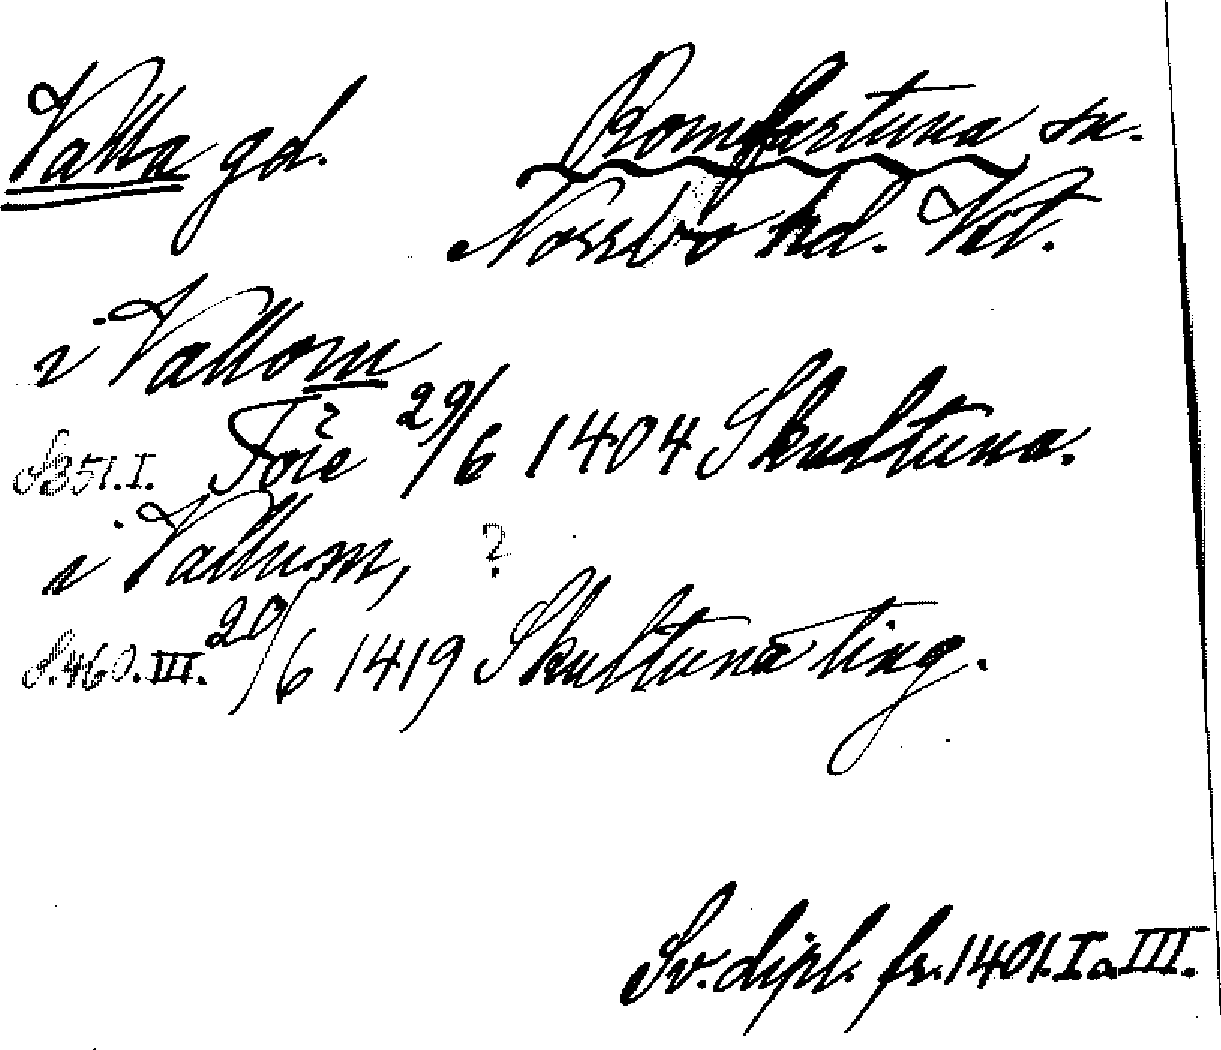 Valla gd. Romfartuna sn.
Norrbo hd. Vstl.
i Vallom
S351.I. Toie 29/6 1404 Skultuna.
i Vallum, ?
S.460.III. 20/6 1419 Skultuna ting.
Sv. dipl. fr. 1401. I a III.